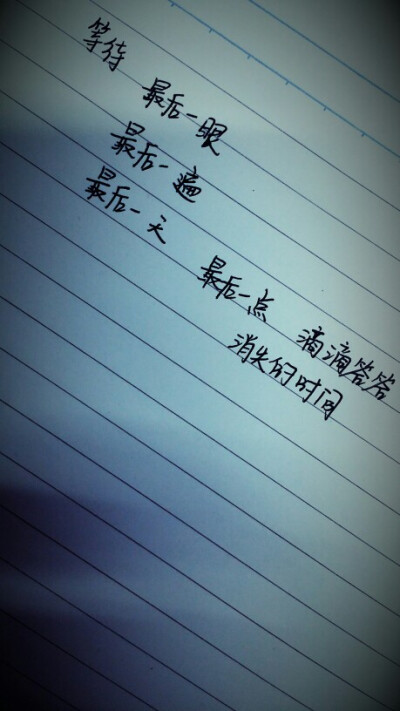 等待
最后一眼
最后一遍
最后一天
最后一点 滴滴答答
消失的时间